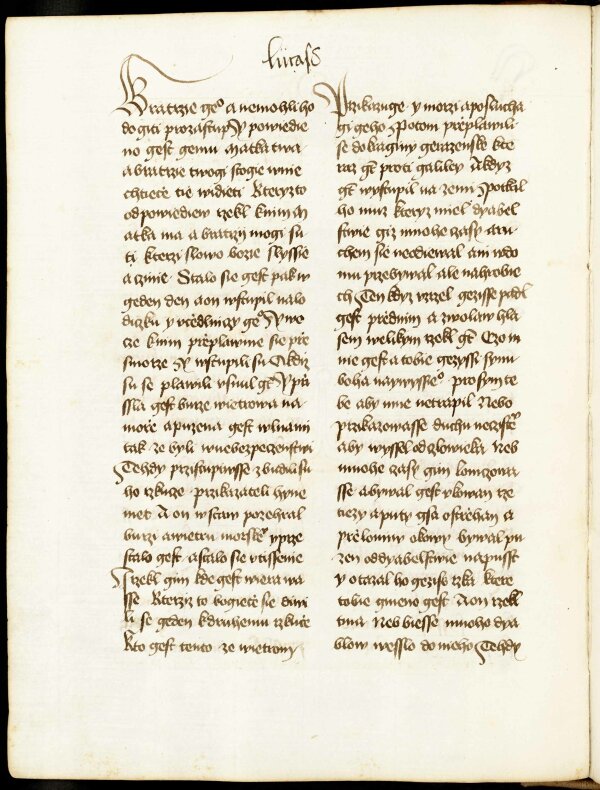 lucass
Bratrzie geº a nemohli ho
dogiti prozastup Y powiedie
no gest gemu matka twa
a bratrzie twogi stogie wnie
chtiece tie widieti Kteryzto
odpowiediew rzekl knim M
atka ma a bratrzij mogi su
ti kterzi slowo bozie slyssie
a czinie Stalo sie gest pak w
geden den a on wstupil nalo
diczku y vczedlniczy geº Y wo
ze knim preplawme sie prse
smorze Y wstupili su A kdiz
su se plawili vsnul gt Y pri
ssla gest burze wietrowa na
morze a puzena gest wlnami
tak ze byli wnebezpeczenstwi
Tehdy przistupiwsse zbudili su
ho rzkuze przikazateli hyne
me A on wstaw pozehral
burzi a wietru morskeº y prze
stalo gest a stalo sie vtissenie
I rzekl gim kde gest wiera wa
sse Kterziz to bogiece sie diwi
li se geden kdruhemu rzkuce
Kto gest tento ze wietrom
Przikazuge y morzi a poslucha
gi geho Potom preplawili
se do kraginy gerazenske kte
raz gt proti galiley A kdyz
gt wystupil na zemi Potkal
ho muz kteryz miel dyabel
stwie giz mnohe czasy a ru
chem sie neodiewal ani wdo
mu przebywal ale nahrobie
ch Ten kdyz vzrzel gezisse padl
gest prednim a zwolaw hla
sem welikym rzekl gt Czo m
nie gest a tobie gezyssi synu
boha naywyssieº prosym te
be aby mne netrapil Nebo
przikazowasse duchu neczisteº
aby wyssel od czlowieka Neb
mnohe czasy gim lomczowa
sse a bywal gest vkowan rze
tiezy a puty gsa ostrehan a
prelomiw okowy bywal pu
zen od dyabelstwie napusst
y otazal ho gezisse rzka ktere
tobie gmeno gest A on rzekl
tma Neb biesse mnoho dya
blow wesslo do nieho Tehdy